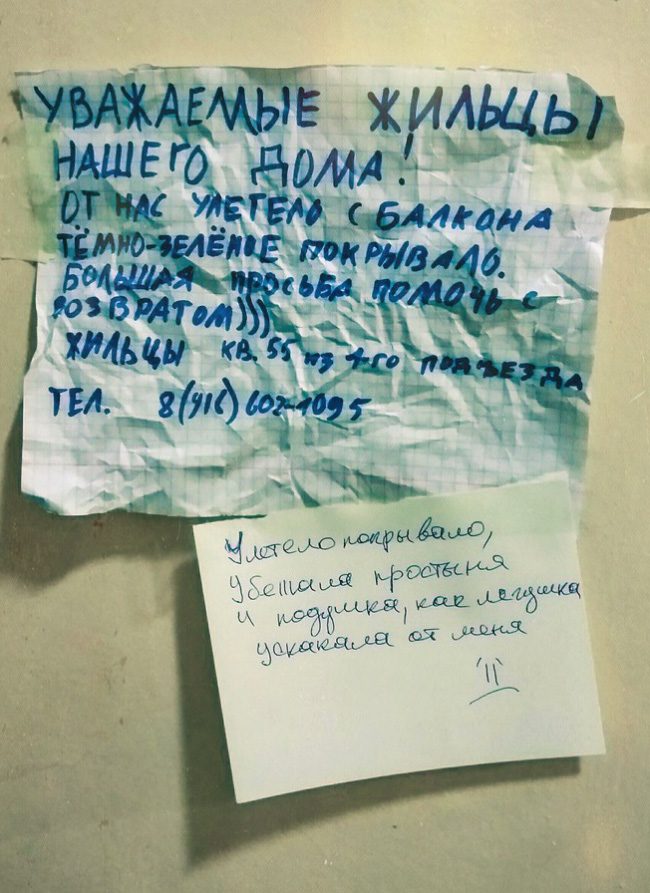 УВАЖАЕМЫЕ ЖИЛЬЦЫ
НАШЕГО ДОМА!
ОТ НАС УЛЕТЕЛО С БАЛКОНА
ТЁМНО-ЗЕЛЁНОЕ ПОКРЫВАЛО.
БОЛЬШАЯ ПРОСЬБА ПОМОЧЬ С
ВОЗВРАТОМ)))
ЖИЛЬЦЫ КВ. 55 ИЗ 4-ГО ПОДЪЕЗДА
ТЕЛ. 8(916)602-1095
Улетело покрывало,
Убежала простыня
и подушка, как лягушка
ускакала от меня